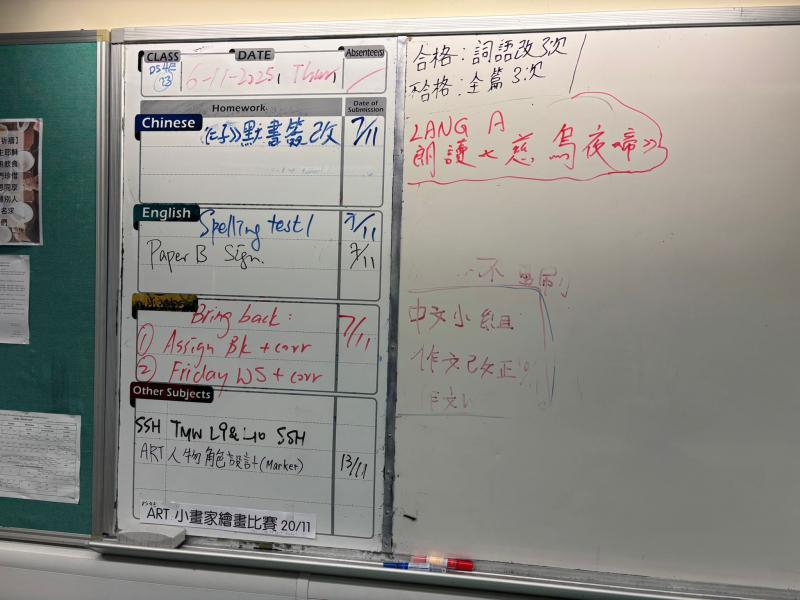 CLASS
DATE
Absentee(s)
6-11-2025, Thurs
Homework
Date of Submission
Chinese
默書簽改
7/11
English
Spelling test 1
7/11
Paper B Sign.
7/11
Bring back:
7/11
① Assign Bk + corr
② Friday WS + corr
Other Subjects
SSH TMW L9 & L10 SSH
ART 人物角色設計 (Marker)
13/11
ART 小畫家繪畫比賽 20/11
合格：詞語改3次
合格：全篇3次
LANG A
朗讀《慈烏夜啼》
不
中文小組
作文改正